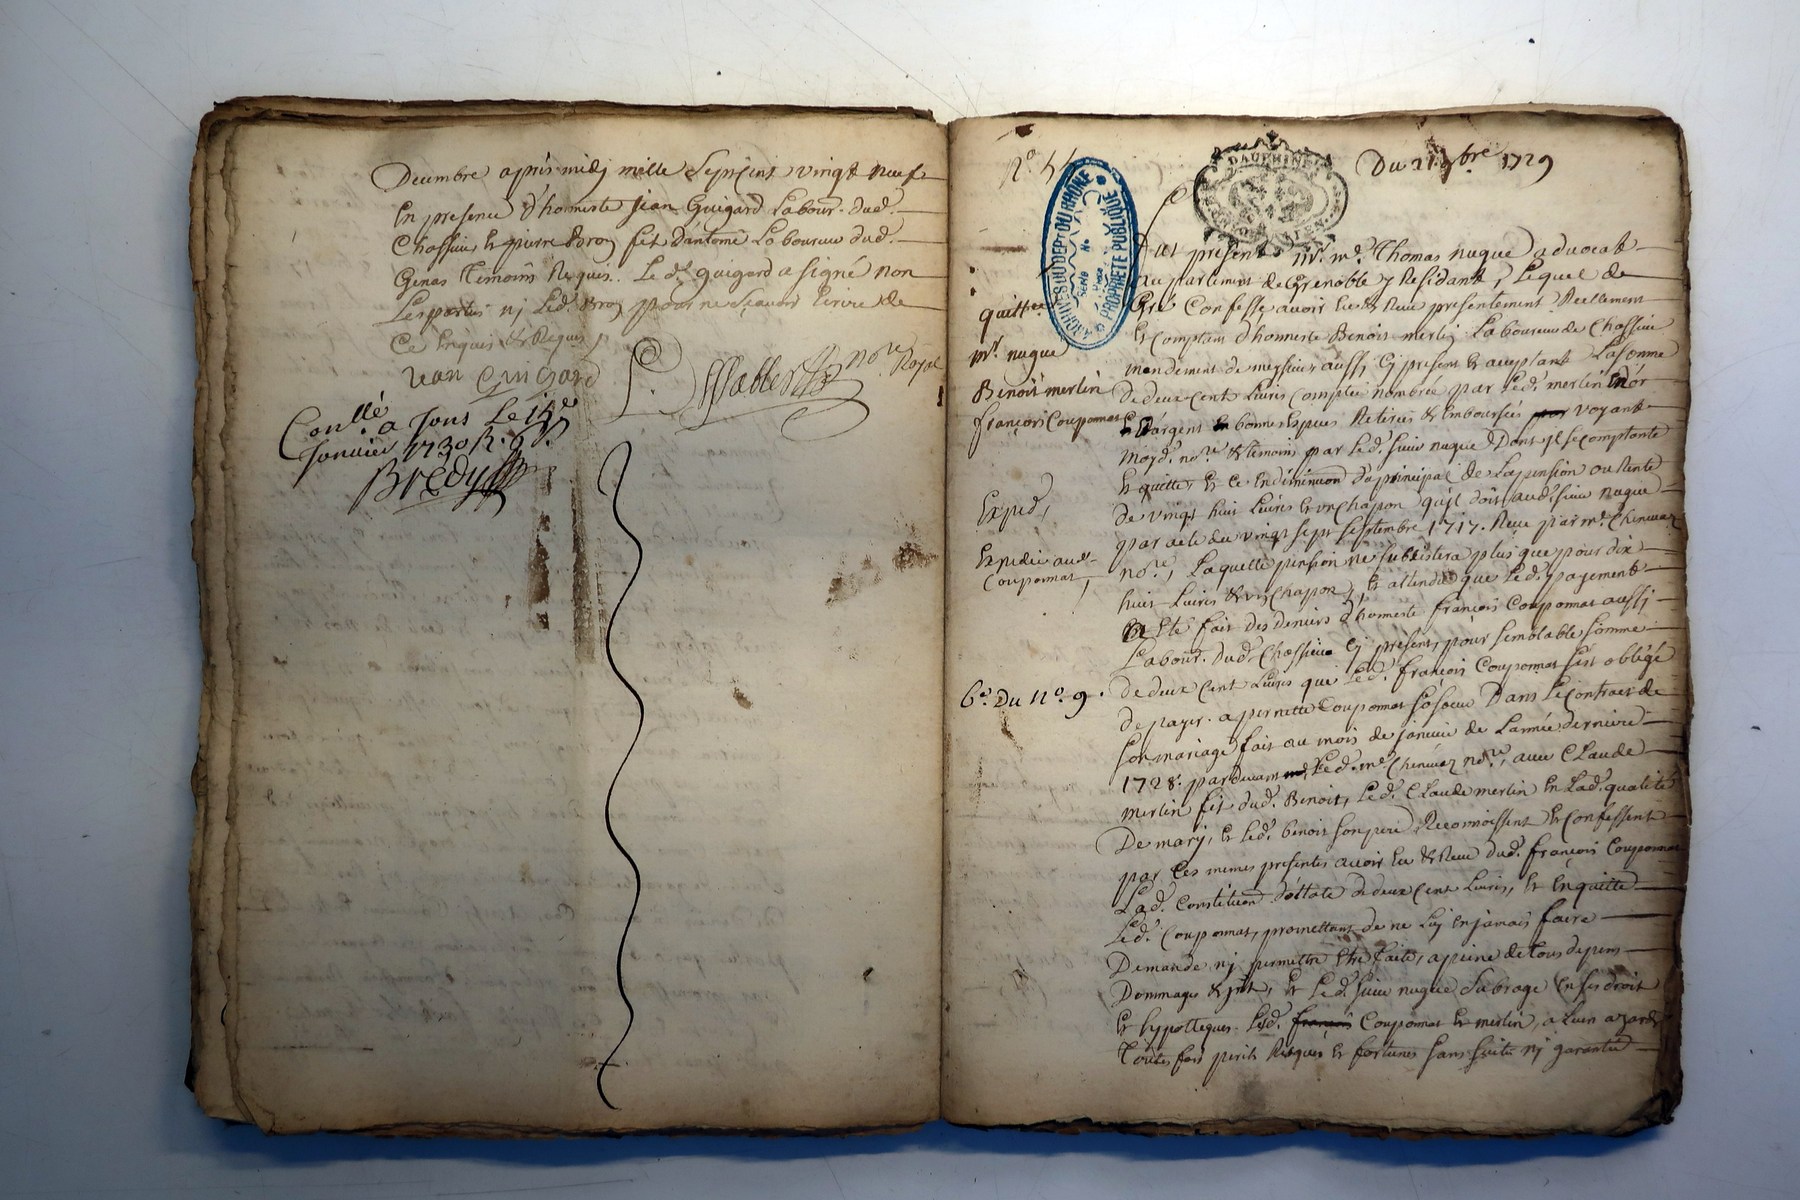 Decembre apres midy mille Sept Cent vingt neuf
En presence d'honneste Jean Guigard Labour. dud.
Chassieu & pierre Broy fils d'antoine Laboureur dud.
Genas Temoins Requis. Le d. guigard a signé non
Les parties ny Led. Broy pour ne sçavoir Ecrire de
Ce Enquis & Requis
Jean Guigard
no.re Royal
Con.llé a Jons Le 15e
Janvier 1730 R. 9 s.
Bredy
Du 21 9bre 1729
N.o
DAUPHINE
ARCHIVES DU DEPT DU RHONE
PROPRIETE PUBLIQUE
Fut present Mr. me. Thomas nugue advocat
au parlement de Grenoble y Residant, Lequel de
Gré Confesse avoir Eu & Receu presentement Reellement
& Comptant d'honneste Benoit merlin Laboureur de Chassieu
mandement de meyzieux aussi Cy present & acceptant La somme
de deux Cent Livres Comptée nombrée par Led. merlin En or
& d'argent En bonnes Especes Retirées & Emboursées voyant
moyd. no.re & temoins par Led. sieur nugue Dont il se comptente
& quitte, & ce En diminution du principal de La pension ou Rente
de vingt huit Livres & un Chapon qu'il doit aud. sieur nugue
par acte du vingt sept septembre 1717. Receu par me. Chenevaz
no.re, Laquelle pension ne subsistera plus que pour dix
huit Livres & un Chapon, & attendu que Led. payement
a Eté fait des deniers d'honneste françois Couponnat aussi
Labour. dud. Chassieu Cy present, pour semblable somme
de deux Cent Livres que Led. françois Couponnat s'est obligé
de payer a pernette Couponnat sa soeur Dans Le contract de
son mariage fait au mois de janvier de L'année derniere
1728. pardevant Led. me. Chenevaz no.re, avec Claude
merlin fils dud. Benoit, Led. Claude merlin En Lad. qualité
De mary, & Led. benoit son pere Reconnoissent & Confessent
par Ces memes presentes avoir Eu & Receu dud. françois Couponnat
Lad. Constitution dottale de deux Cent Livres, & En quitte
Led. Couponnat, promettant de ne Luy En jamais faire
Demande ny permettre Etre faite, a peine de tous depens
Dommages & jnts, & Led. sieur nugue Subroge En ses droits
& hypotteques Lesd. françois Couponnat & merlin, a Leur azards
Toutes fois perils Risques & fortunes sans suitte ny garantie
quitte
Mr. nugue
Benoit merlin
françois Couponnat
Exped,
Expedié aud.
Couponnat,
6.e Du N.o 9.